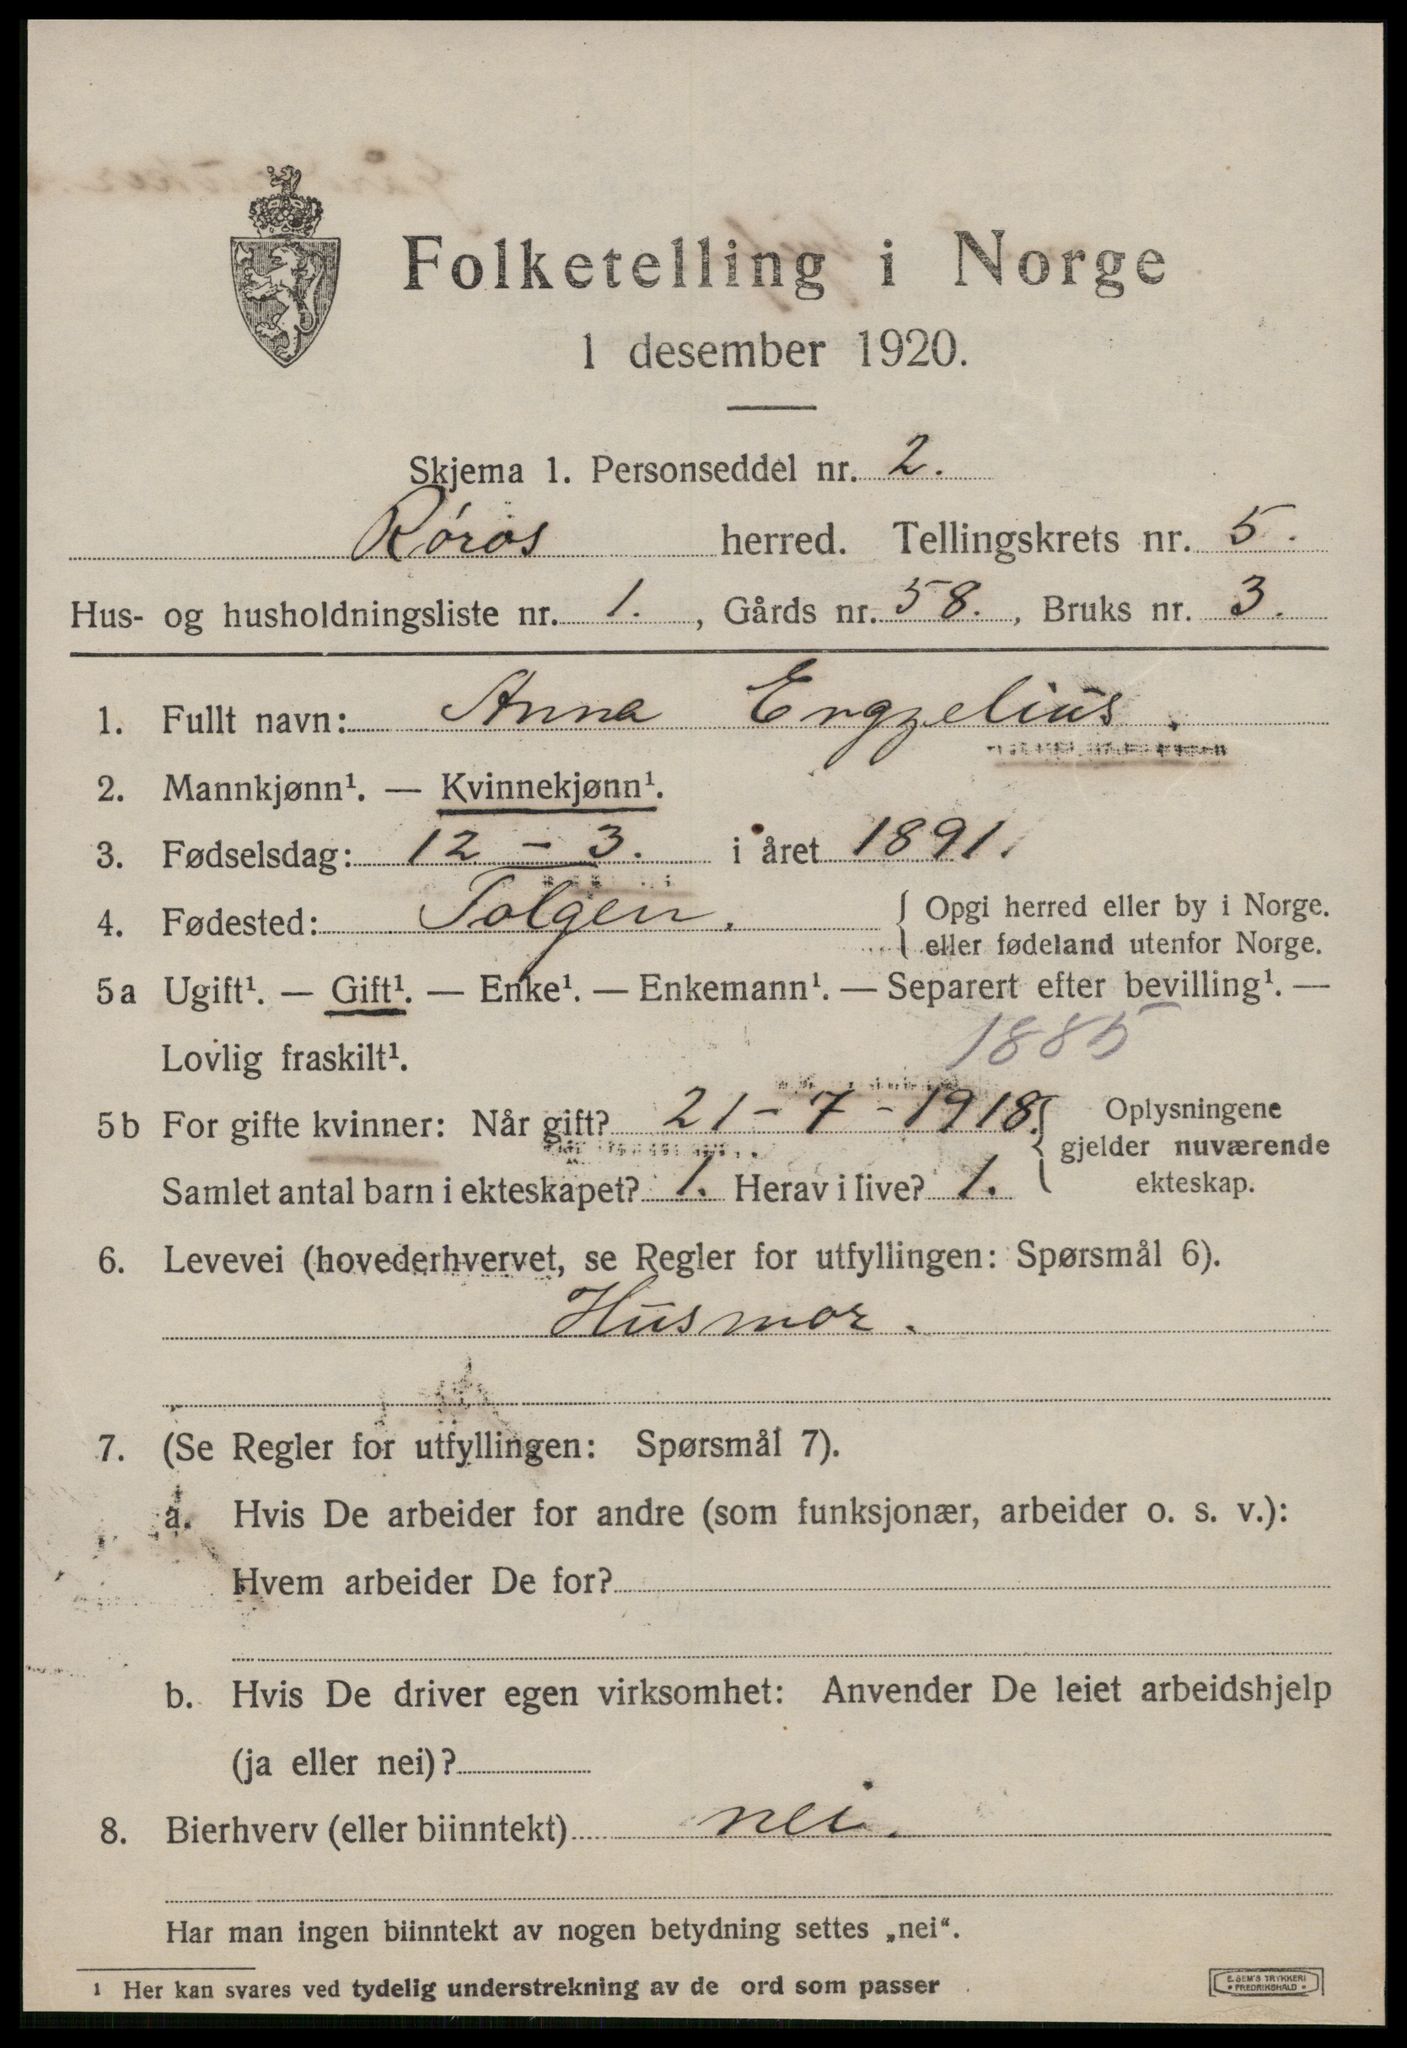 Folketelling i Norge
1 desember 1920.
Skjema 1. Personseddel nr. 2.
Røros herred. Tellingskrets nr. 5.
Hus- og husholdningsliste nr. 1., Gårds nr. 58., Bruks nr. 3.
1. Fullt navn: Anna Engzelius.
2. Mannkjønn¹. — Kvinnekjønn¹.
3. Fødselsdag: 12 - 3. i året 1891.
4. Fødested: Tolgen. { Opgi herred eller by i Norge.
eller fødeland utenfor Norge.
5a Ugift¹. — Gift¹. — Enke¹. — Enkemann¹. — Separert efter bevilling¹. —
Lovlig fraskilt¹. 1885
5b For gifte kvinner: Når gift? 21-7-1918. { Oplysningene
gjelder nuværende
Samlet antal barn i ekteskapet? 1. Herav i live? 1. ekteskap.
6. Levevei (hovederhvervet, se Regler for utfyllingen: Spørsmål 6).
Husmor.
7. (Se Regler for utfyllingen: Spørsmål 7).
a. Hvis De arbeider for andre (som funksjonær, arbeider o. s. v.):
Hvem arbeider De for?
b. Hvis De driver egen virksomhet: Anvender De leiet arbeidshjelp
(ja eller nei)?
8. Bierhverv (eller biinntekt) nei.
Har man ingen biinntekt av nogen betydning settes „nei“.
1 Her kan svares ved tydelig understrekning av de ord som passer
E. SEM'S TRYKKERI
FREDRIKSHALD